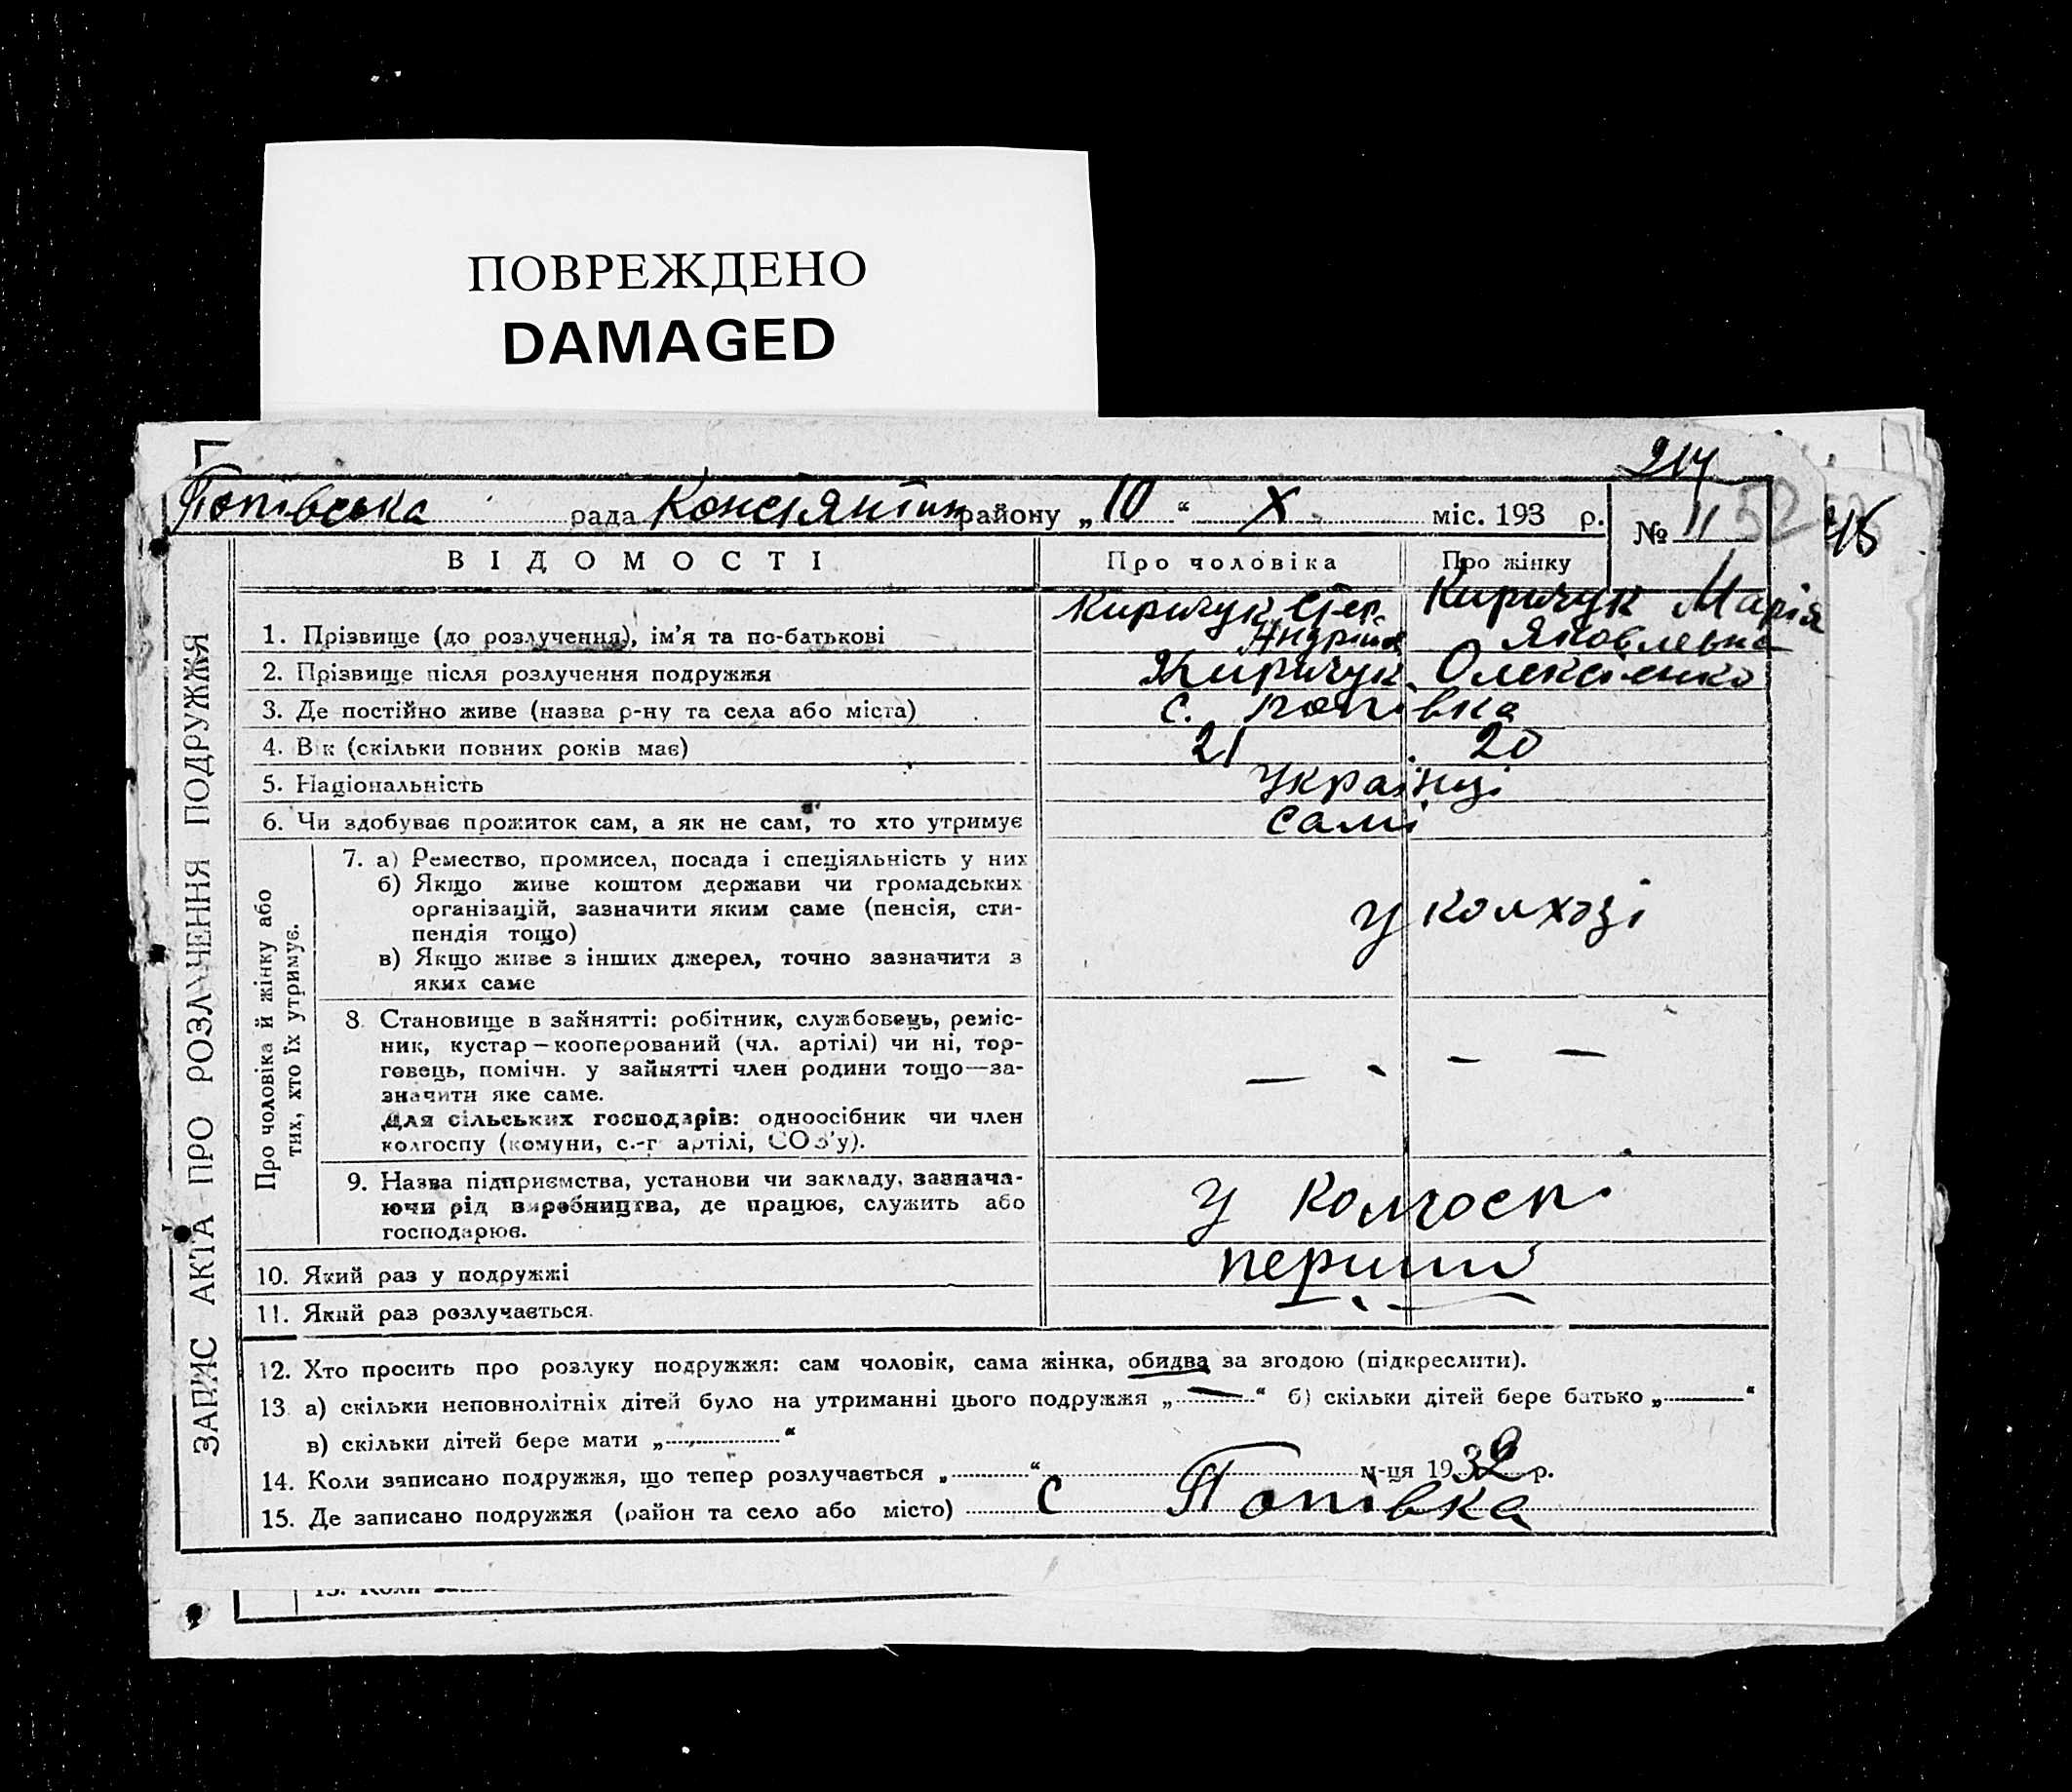 ПОВРЕЖДЕНО
DAMAGED
214
Попівська рада Констянтин району „10“ X міс. 193 р. № 11 52
45
ЗАПИС АКТА ПРО РОЗЛУЧЕННЯ ПОДРУЖЖЯ
ВІДОМОСТІ Про чоловіка Про жінку
1. Прізвище (до розлучення), ім'я та по-батькові Киричук Андрій Киричук Марія Яковлевна
2. Прізвище після розлучення подружжя Киричук Олексієнко
3. Де постійно живе (назва р-ну та села або міста) с. Попівка
4. Вік (скільки повних років має) 21 20
5. Національність Українці
6. Чи здобуває прожиток сам, а як не сам, то хто утримує самі
Про чоловіка й жінку або
тих, хто їх утримує.
7. а) Ремество, промисел, посада і спеціяльність у них
б) Якщо живе коштом держави чи громадських
організацій, зазначити яким саме (пенсія, сти-
пендія тощо)
в) Якщо живе з інших джерел, точно зазначити з
яких саме
у колхозі
8. Становище в зайнятті: робітник, службовець, реміс-
ник, кустар—кооперований (чл. артілі) чи ні, тор-
говець, помічн. у зайнятті член родини тощо—за-
значити яке саме.
Для сільських господарів: одноосібник чи член
колгоспу (комуни, с.-г артілі, СОЗ'у).
— - — —
9. Назва підприємства, установи чи закладу, зазнача-
ючи рід виробництва, де працює, служить або
господарює.
у колгосп
10. Який раз у подружжі перший
11. Який раз розлучається.
12. Хто просить про розлуку подружжя: сам чоловік, сама жінка, обидва за згодою (підкреслити).
13 а) скільки неповнолітніх дітей було на утриманні цього подружжя „—“ б) скільки дітей бере батько „“
в) скільки дітей бере мати „“
14. Коли записано подружжя, що тепер розлучається „“ м-ця 1932 р.
15. Де записано подружжя (район та село або місто) с Попівка